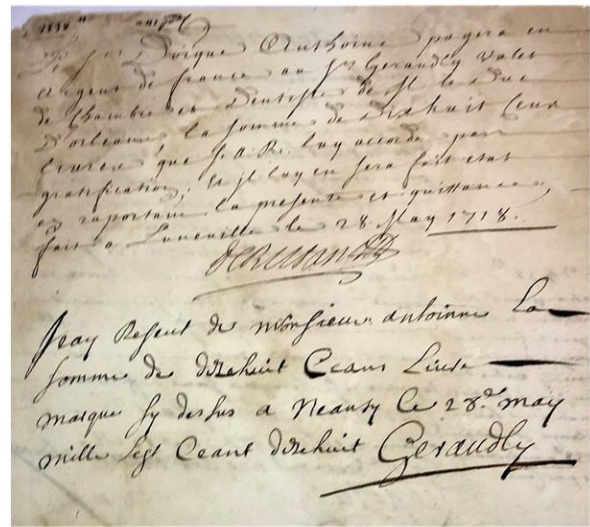 Le Sr. Dorque Anthoine payera en
argent de france au Sr Geraudly Valet
de Chambre et Dentiste de M le duc
D'orleans, la somme de Dixhuit Cent
livres que S. A. R. luy accorde par
gratification, et jl luy en sera fait etat
en raportant la presente et quittance,
fait a Luneville le 28 May 1718.
Jeay Reseut de monsieur antoinne La
somme de diseheuit Ceans Liure
marque sy desus a Neansy Ce 28.me may
mille sept Ceant diseheuit Geraudly